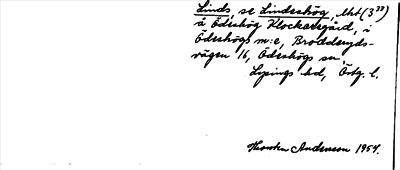 Linds se Lindeshög, lht (3³³)
å Ödeshög Klockaregård, i
Ödeshögs m:e, Broddaryds-
vägen 16, Ödeshögs sn,
Lysings hd, Östg. l.
Thorsten Andersson 1954.